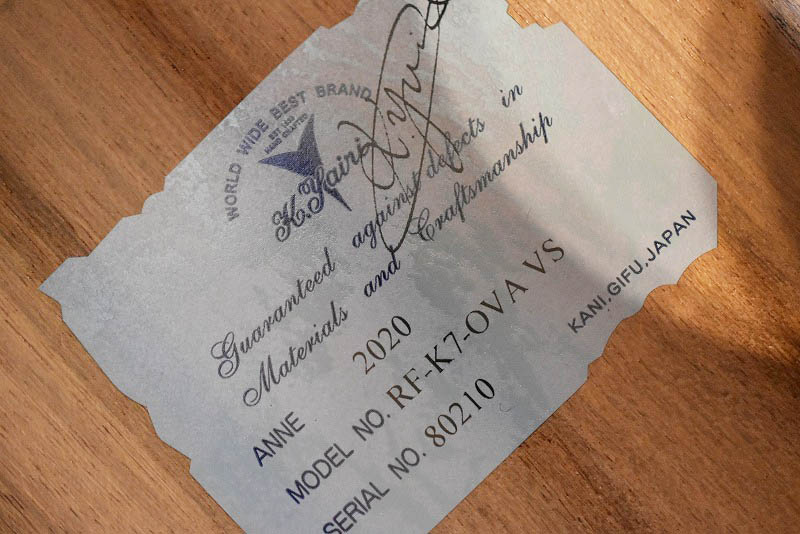 WORLD WIDE BEST BRAND
EST 1935
HAND CRAFTED
K.Yairi
Guaranteed against defects in
Materials and Craftsmanship
ANNE 2020
MODEL NO. RF-K7-OVA VS
SERIAL NO. 80210
KANI, GIFU, JAPAN